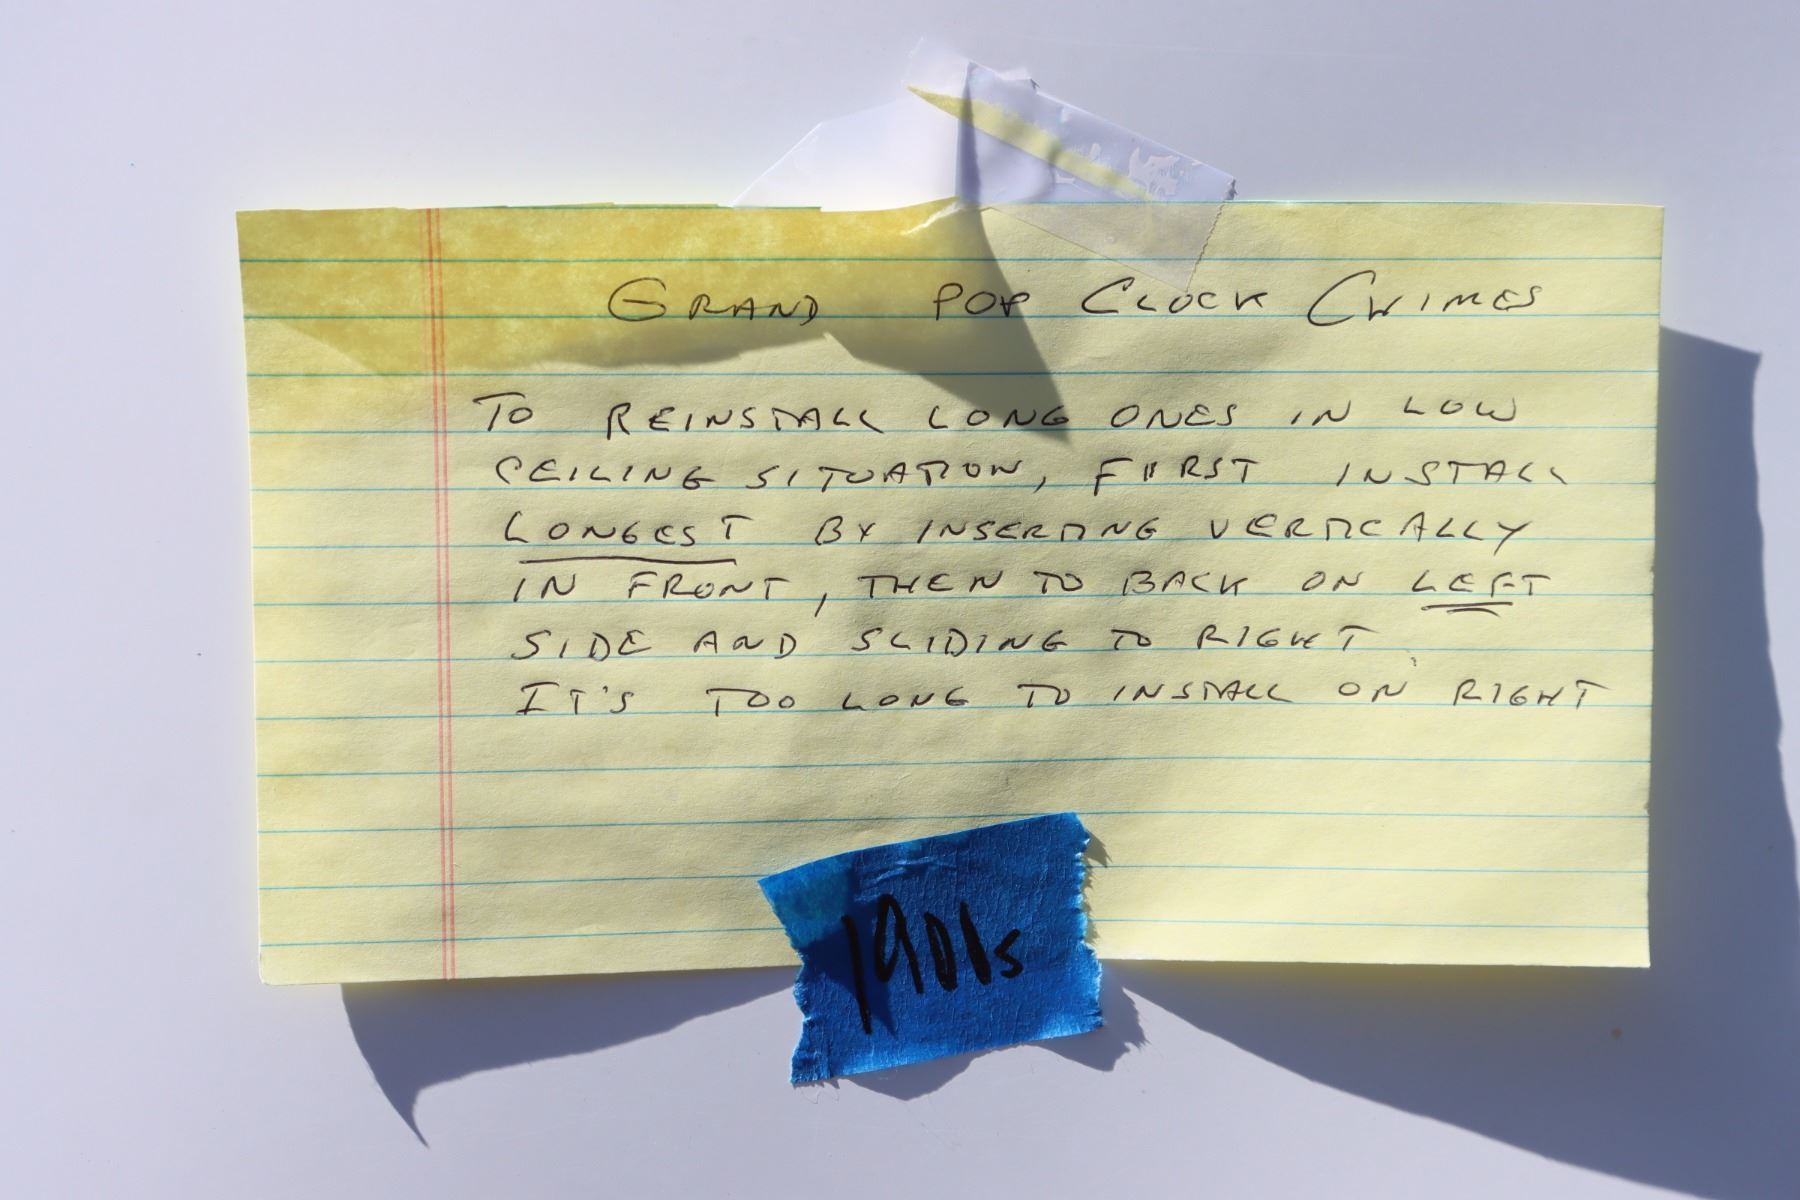 GRAND POP CLOCK CHIMES
TO REINSTALL LONG ONES IN LOW
CEILING SITUATION, FIRST INSTALL
LONGEST BY INSERTING VERTICALLY
IN FRONT, THEN TO BACK ON LEFT
SIDE AND SLIDING TO RIGHT.
IT'S TOO LONG TO INSTALL ON RIGHT